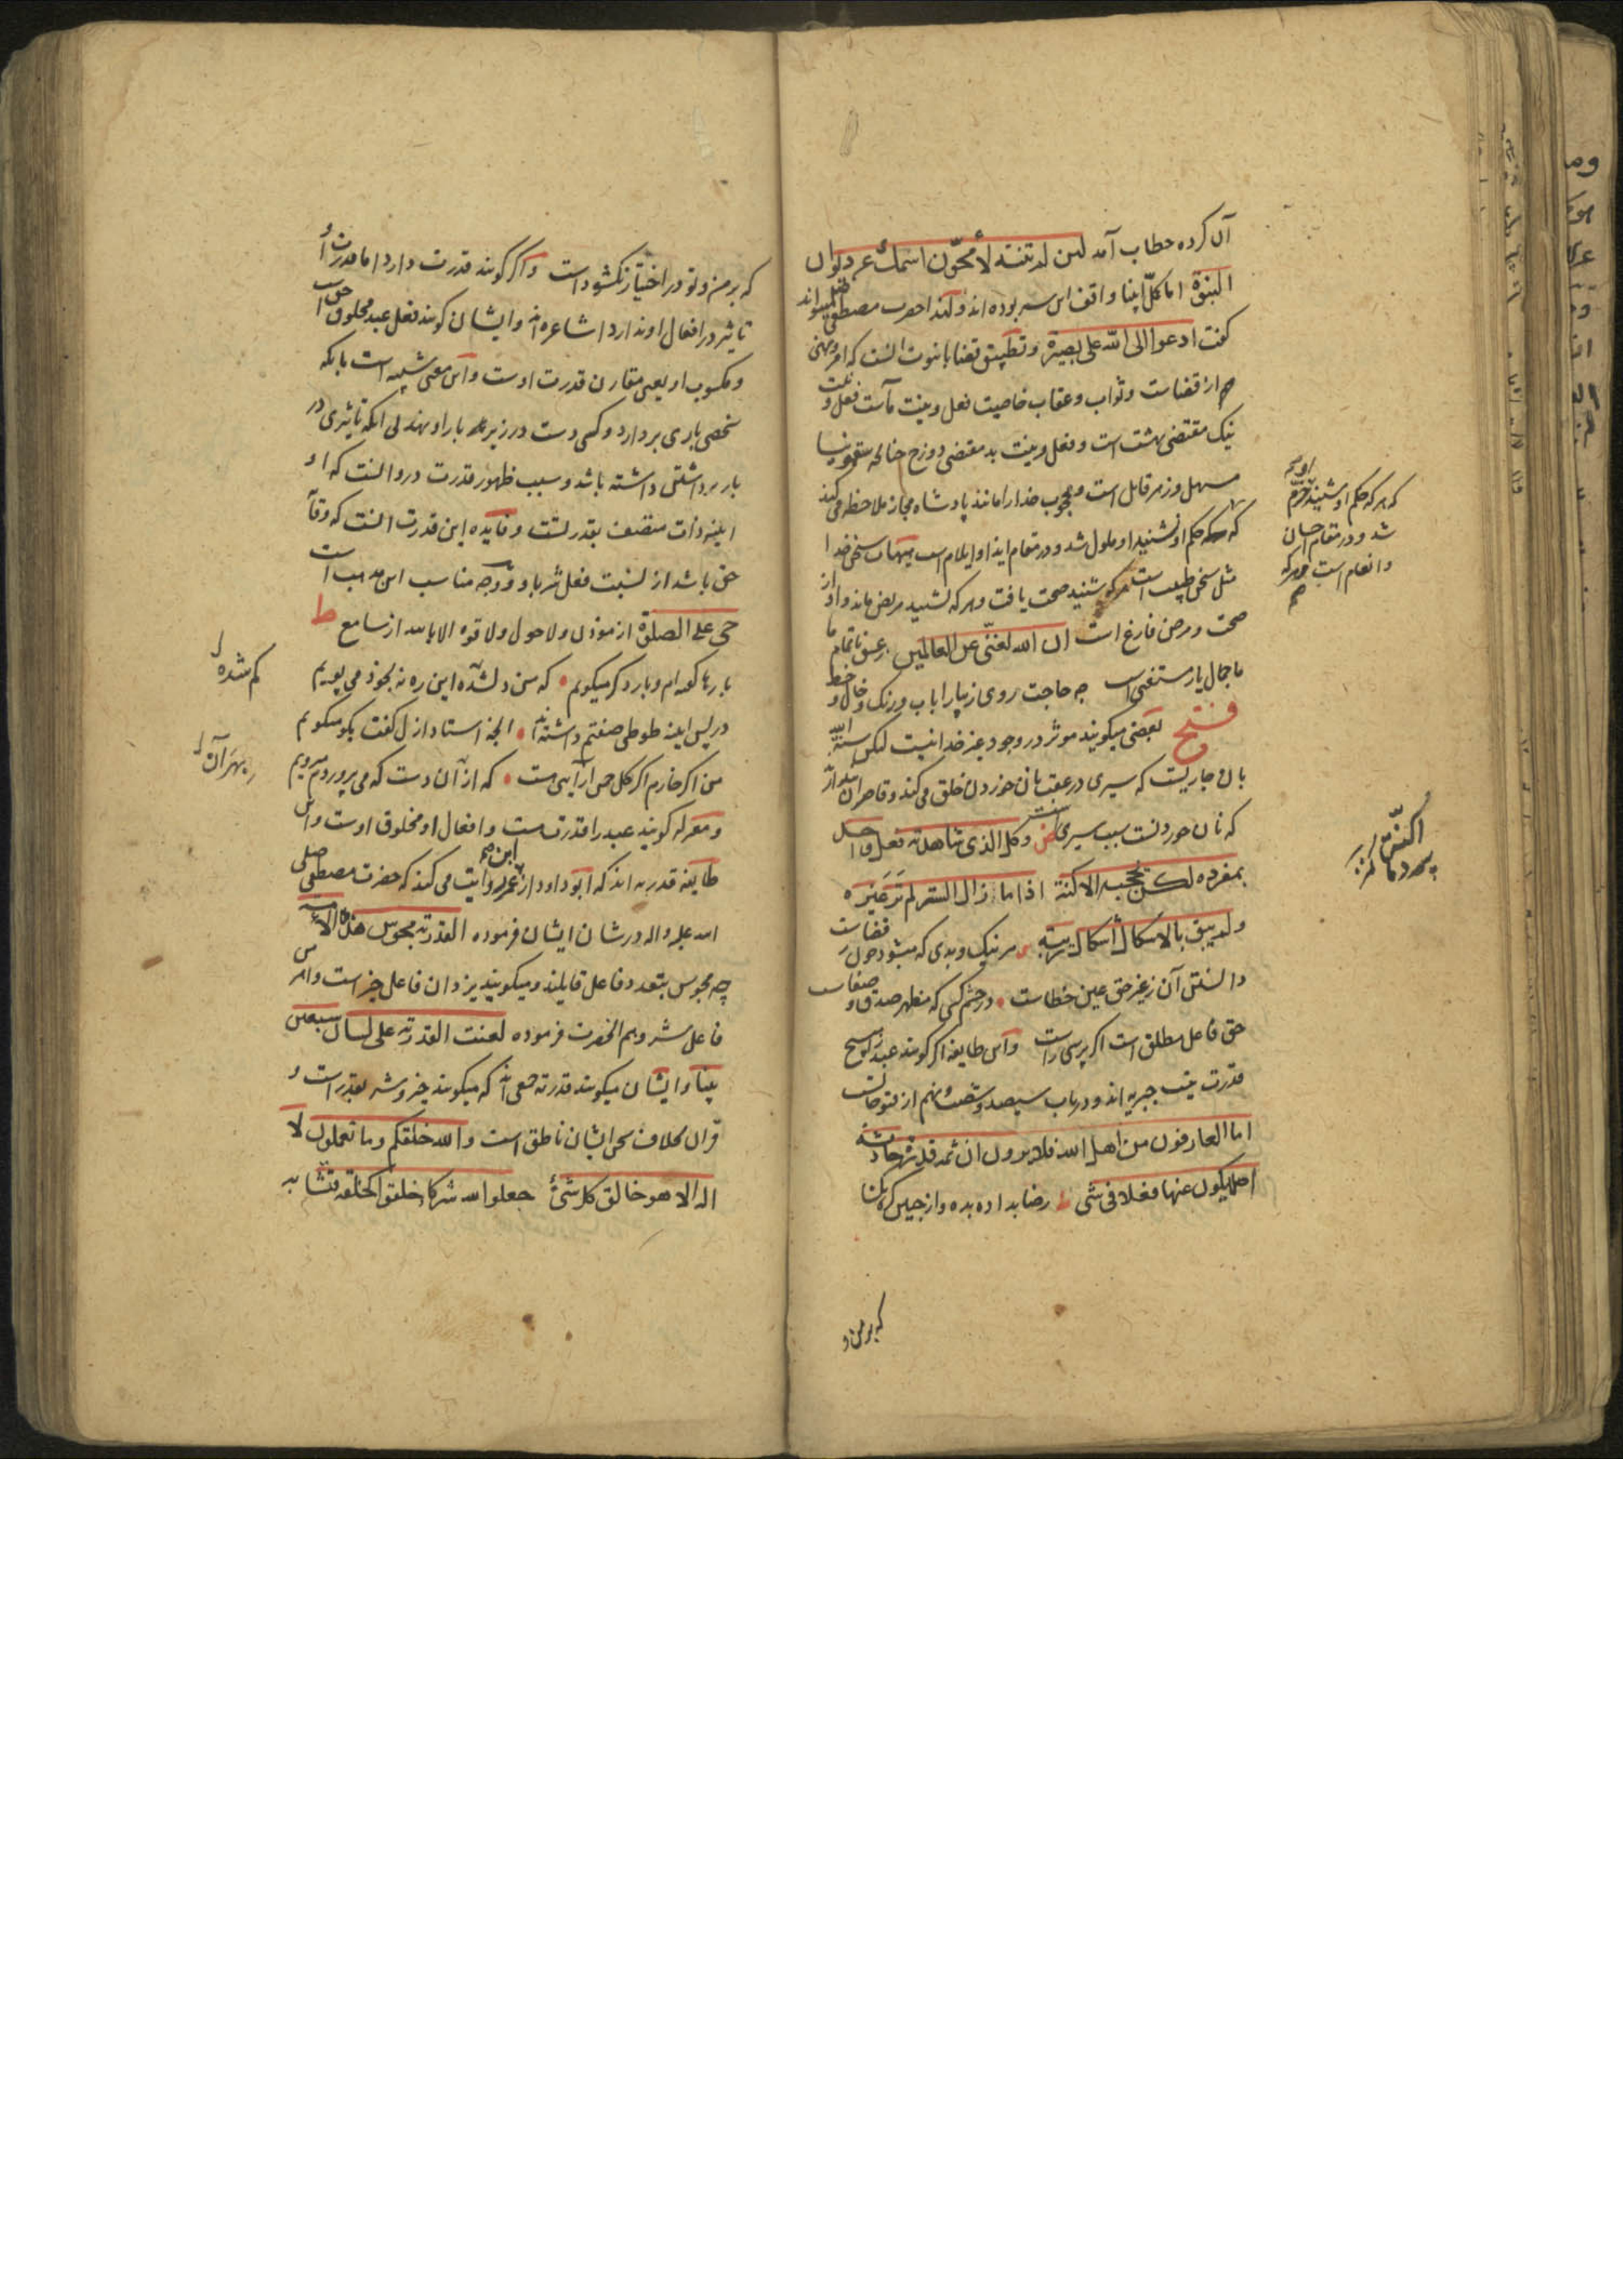 آن کرده خطاب آمد لئن لم تنته لأمحونّ اسمك عن دیوان
النبوة اما کلّ انبیا واقف این سر بوده اند ولهذا حضرت مصطفی
گفت ادعوا الی الله علی بصیرة و تطبیق قضا با نبوت آنست که امر و نهی
هم از قضاست و ثواب و عقاب خاصیت فعل و نیت ماست فعل و نیت
نیک مقتضی بهشت است و فعل و نیت بد مقتضی دوزخ چنانکه سقمونیا
مسهل و زهر قاتل است و محجوب خدا را مانند پادشاه مجاز ملاحظه می کند
که هرکه حکم او شنید خرّم
شد و در مقام احسان
و انعام است و هرکه
حکم او نشنید او ملول شد و در مقام ایذا و ایلام است هیهات سخن خدا
مثل سخن طبیب است هرکه شنید صحت یافت و هرکه نشنید مریض ماند و او از
صحت و مرض فارغ است ان الله لغنی عن العالمین ز عشق ناتمام ما
جمال یار مستغنی است چه حاجت روی زیبا را باب و رنک و خال و خط
فتح بعضی میکویند موثر در وجود غیر خدا نیست لیکن سنة الله
بان جاریست که سیری در عقب نان خوردن خلق می کند و قاصران پندارند
که نان خوردنست سبب سیری است و کل الذی شاهدته فعل واحد
بمفرده لکن بحجب الاکنة اذا ما ازال الستر لم تر غیره
ولم یبق بالاشکال اشکال ریبة هر نیک و بدی که میشود چون ز قضاست
دانستن آن ز غیر حق عین خطاست در چشم کسی که مظهر صدق و صفاست
حق فاعل مطلق است اکر پرسی راست و این طایفه اکر کویند عبد را هیچ
قدرت نیست جبریه اند و در باب سیصد و شصت و نهم از فتوحاتست
اما العارفون من اهل الله فلا یرون ان ثمه قدرة حادثة
اصلا یکون عنها فعلا فی شی رضا بداده بده وز جبین کره بکشا
که بر من و
که بر من و تو در اختیار نکشودست و اکر کویند قدرت دارد اما قدرت او
تاثیر در افعال او ندارد اشاعره اند و ایشان کویند فعل عبد مخلوق حق است
و مکسوب او یعنی مقارن قدرت اوست و این معنی شبیه است بانکه
شخصی باری بردارد و کسی دست در زیر بار او نهد بی انکه تاثیری در
بار برداشتن داشته باشد و سبب ظهور قدرت درو انست که او
اینه ذات متصف بقدرتست و فایده این قدرت انست که وقایه
حق باشد از نسبت فعل شر باو و وجه مناسب این مذهب است
حی علی الصلوة از موذن و لاحول ولا قوة الا بالله از سامع
بارها کفته ام و بار دکر میکویم که من دلشده این ره نه بخود می پویم
کم شده
در پس اینه طوطی صفتم داشته اند انچه استاد ازل کفت بکو میکویم
من اکر خارم اکر کل چمن آرایی هست که از آن دست که می پروردم میرویم
و معتزله کویند عبد را قدرت هست و افعال او مخلوق اوست و این
طایفه قدریه اند که ابو داود از ابن عمر روایت می کند که حضرت مصطفی صلی
الله علیه و اله در شان ایشان فرموده القدریة مجوس هذه الامة
چه مجوس بتعدد فاعل قایلند و میکویند یزدان فاعل خیر است و اهرمن
فاعل شر و هم انحضرت فرموده لعنت القدریة علی لسان سبعین
نبیا و ایشان میکویند قدریه جمعی اند که میکویند خیر و شر بقدر است و
قران بخلاف سخن ایشان ناطق است والله خلقکم وما تعملون لا
اله الا هو خالق کل شئ جعلوا لله شرکا خلقوا کخلقه فتشابه